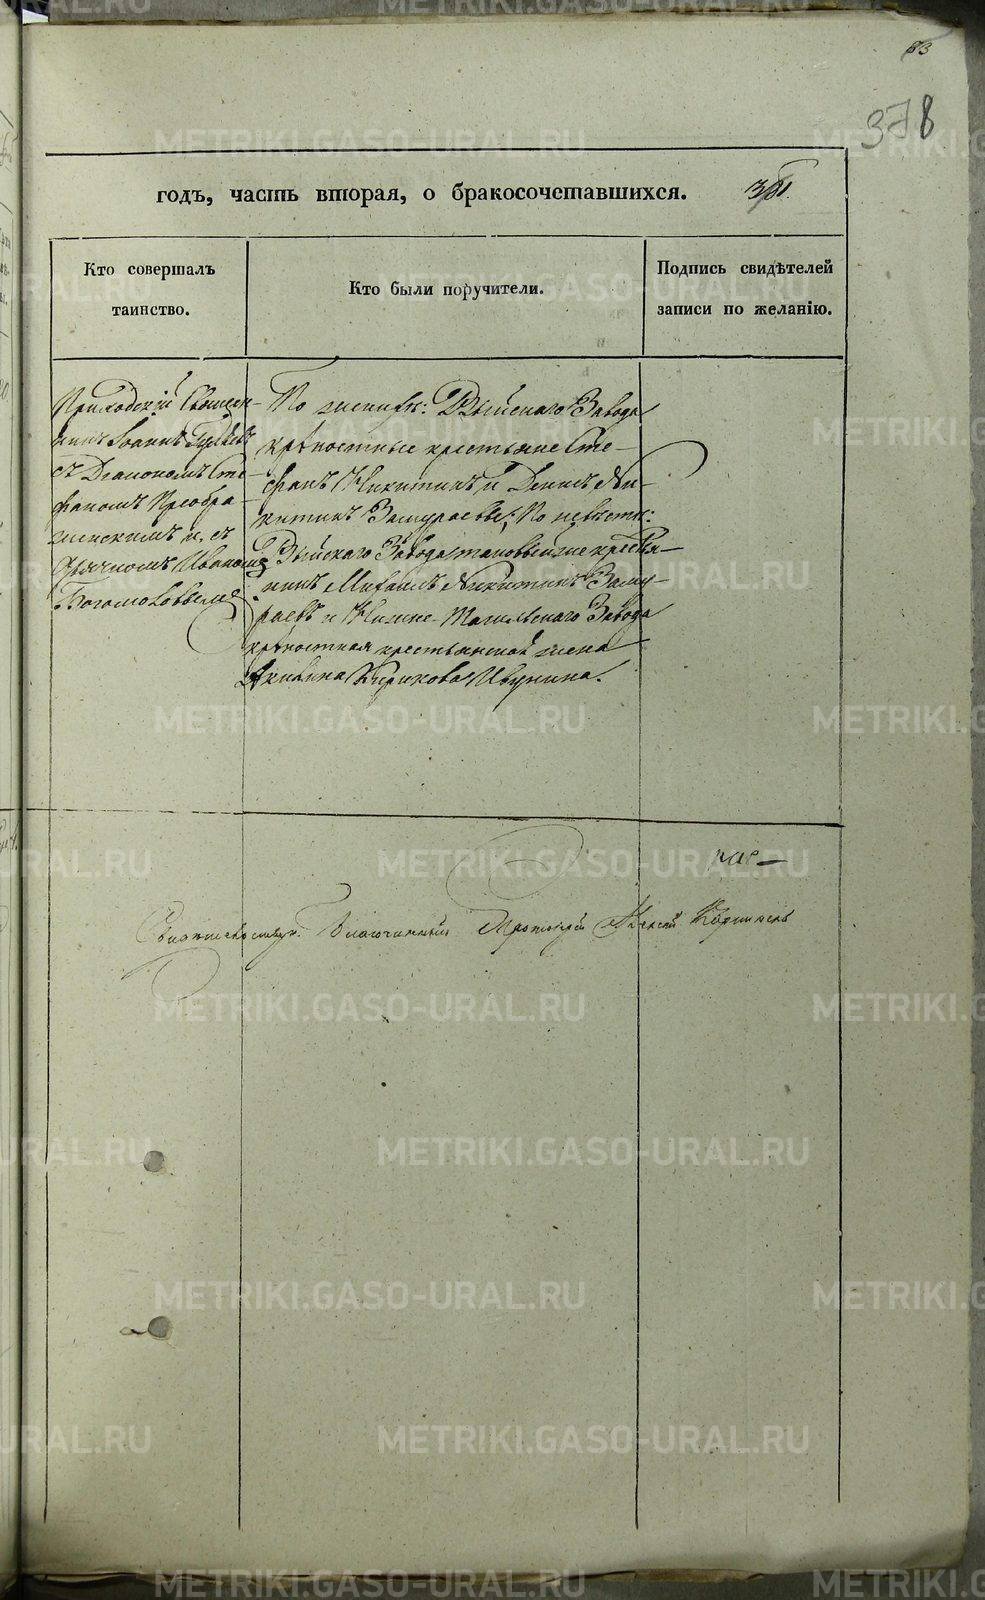 83
378
годъ, часть вторая, о бракосочетавшихся.
Кто совершалъ
таинство.
Кто были поручители.
Подпись свидѣтелей
записи по желанію.
Приходскій Священ-
никъ Іоаннъ
съ Діакономъ Сте-
фаномъ Преобра-
женскимъ и съ
Иваномъ
Богомоловымъ
По женихѣ: Выйскаго Завода
крѣпостные крестьяне Сте-
фанъ Никитинъ и Денисъ Ни-
китинъ Замураевы; По невѣстѣ:
Выйскаго Завода таковый же крестья-
нинъ Михаилъ Никитинъ Заму-
раевъ и Нижне-Тагильскаго Завода
крѣпостная крестьянская жена
Акилина Кирикова Ивунина.
Благочинный Протоіерей
METRIKI.GASO-URAL.RU